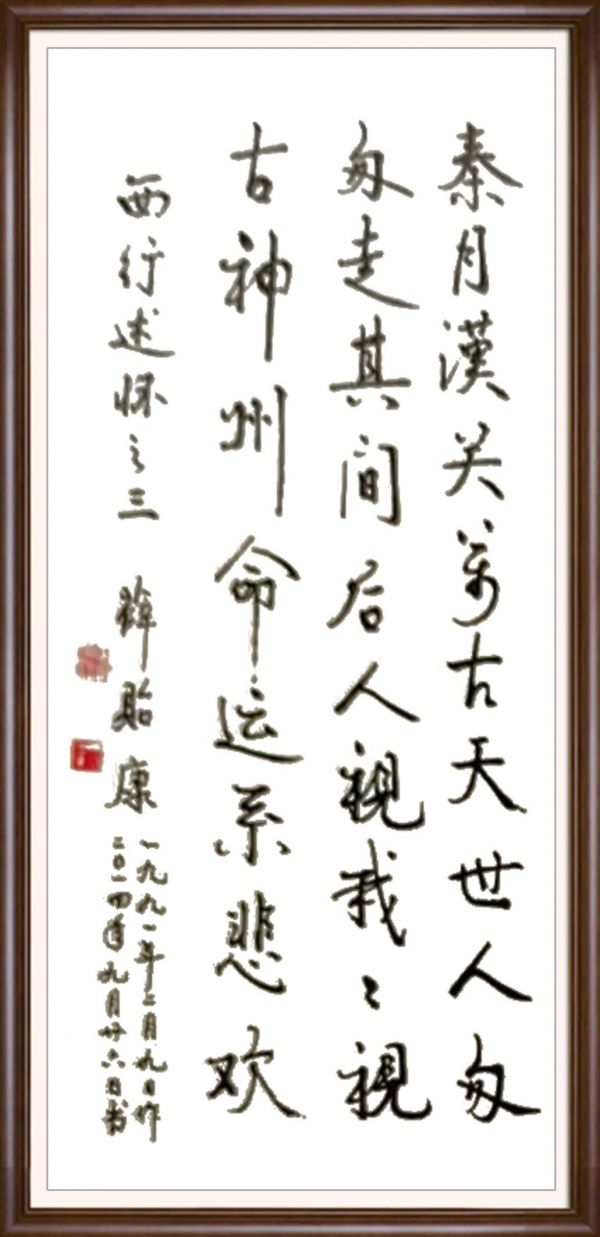 秦月漢关萬古天世人匆
匆走其间后人視我〻視
古神州命运系悲欢
西行述怀之三 贻康
一九九一年二月九日作
二〇一四年九月廿六日书